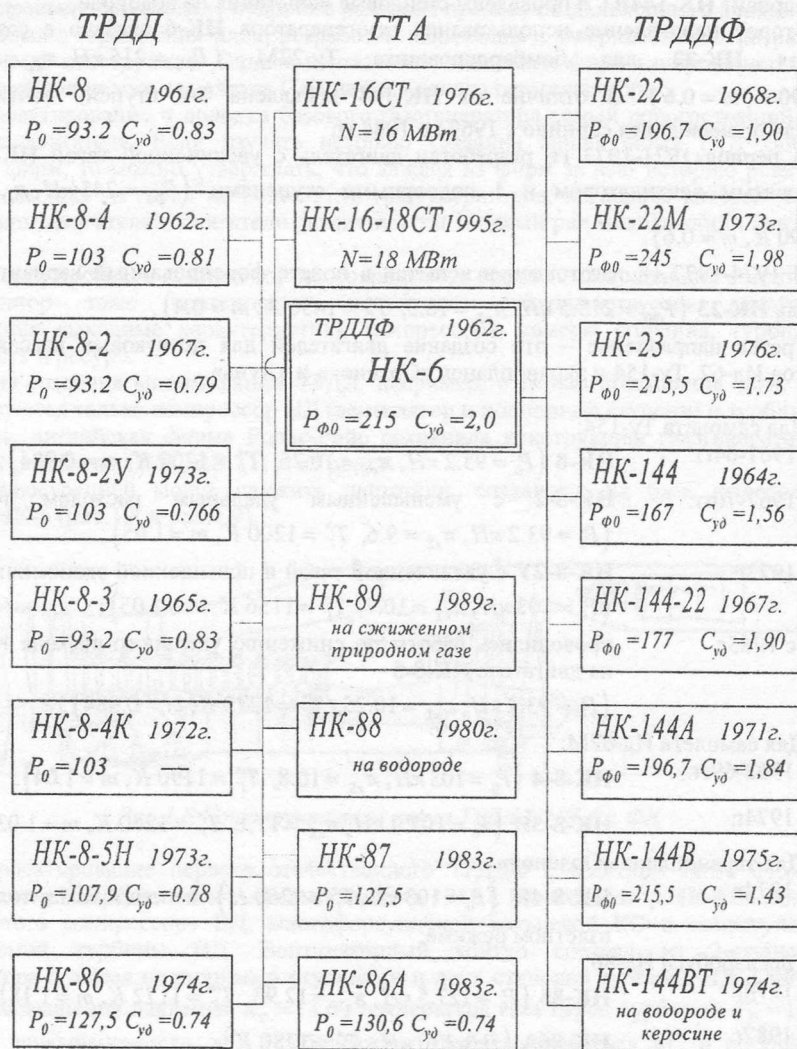 ТРДД
ГТА
ТРДДФ
НК-8 1961г.
P₀=93.2 Cуд=0.83
НК-8-4 1962г.
P₀=103 Cуд=0.81
НК-8-2 1967г.
P₀=93.2 Cуд=0.79
НК-8-2У 1973г.
P₀=103 Cуд=0.766
НК-8-3 1965г.
P₀=93.2 Cуд=0.83
НК-8-4К 1972г.
P₀=103
НК-8-5Н 1973г.
P₀=107.9 Cуд=0.78
НК-86 1974г.
P₀=127,5 Cуд=0.74
НК-16СТ 1976г.
N=16 МВт
НК-16-18СТ 1995г.
N=18 МВт
ТРДДФ 1962г.
НК-6
PФ0=215 Cуд=2,0
НК-89 1989г.
на сжиженном
природном газе
НК-88 1980г.
на водороде
НК-87 1983г.
P₀=127,5
НК-86А 1983г.
P₀=130,6 Cуд=0.74
НК-22 1968г.
PФ0=196,7 Cуд=1,90
НК-22М 1973г.
PФ0=245 Cуд=1,98
НК-25 1976г.
PФ0=215,5 Cуд=1,73
НК-144 1964г.
PФ0=167 Cуд=1,56
НК-144-22 1967г.
PФ0=177 Cуд=1,90
НК-144А 1971г.
PФ0=196,7 Cуд=1,84
НК-144В 1975г.
PФ0=215,5 Cуд=1,43
НК-144ВТ 1974г.
на водороде и
керосине